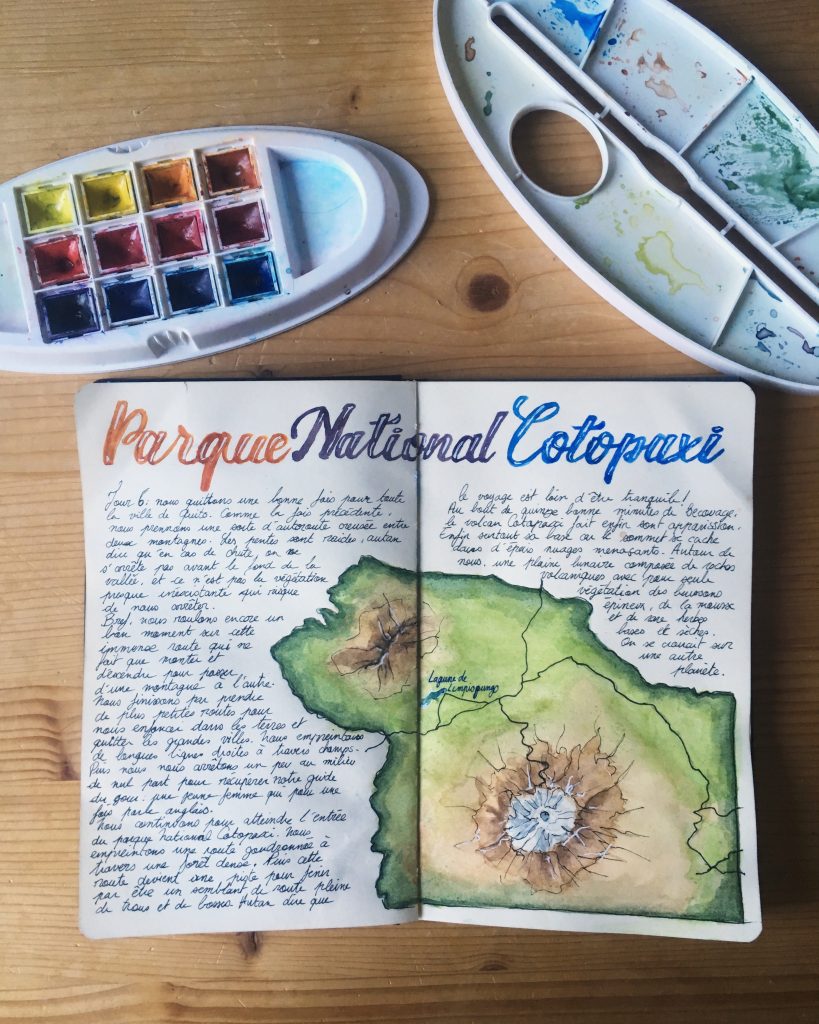 Parque National Cotopaxi
Jour 6: nous quittons une bonne fois pour toute
la ville de Quito. Comme la fois précédente,
nous prennons une sorte d'autoroute creusée entre
deux montagnes. Les pentes sont raides, autan
dire qu'en cas de chute, on ne
s'arrête pas avant le fond de la
vallée, et ce n'est pas la végétation
presque inexistante qui risque
de nous arrêter.
Bref, nous roulons encore un
bon moment sur cette
immense route qui ne
fait que monter et
descendre pour passer
d'une montagne à l'autre.
Nous finissons par prendre
de plus petites routes pour
nous enfoncer dans les terres et
quitter les grandes villes. Nous empreintons
de longues lignes droites à travers champs.
Puis nous nous arrêtons un peu au milieu
de nul part pour récupérer notre guide
du jour: une jeune femme qui pour une
fois parle anglais.
Nous continuons pour atteindre l'entrée
du parque National Cotopaxi. Nous
empreintons une route goudronnée à
travers une forêt dense. Puis cette
route devient une piste pour finir
par être un semblant de route pleine
de trous et de bosses. Autan dire que
le voyage est loin d'être tranquile!
Au bout de quinze bonne minutes de secouage,
le volcan Cotopaxi fait enfin son apparission.
Enfin surtout sa base où le sommet se cache
dans d'épais nuages menaçants. Autour de
nous, une plaine lunaire composée de roches
volcaniques avec pour seule
végétation des buissons
épineux, de la mousse
et de rare herbes
basses et sèches.
On se croirait sur
une autre
planète.
Lagune de
Limpiopungo